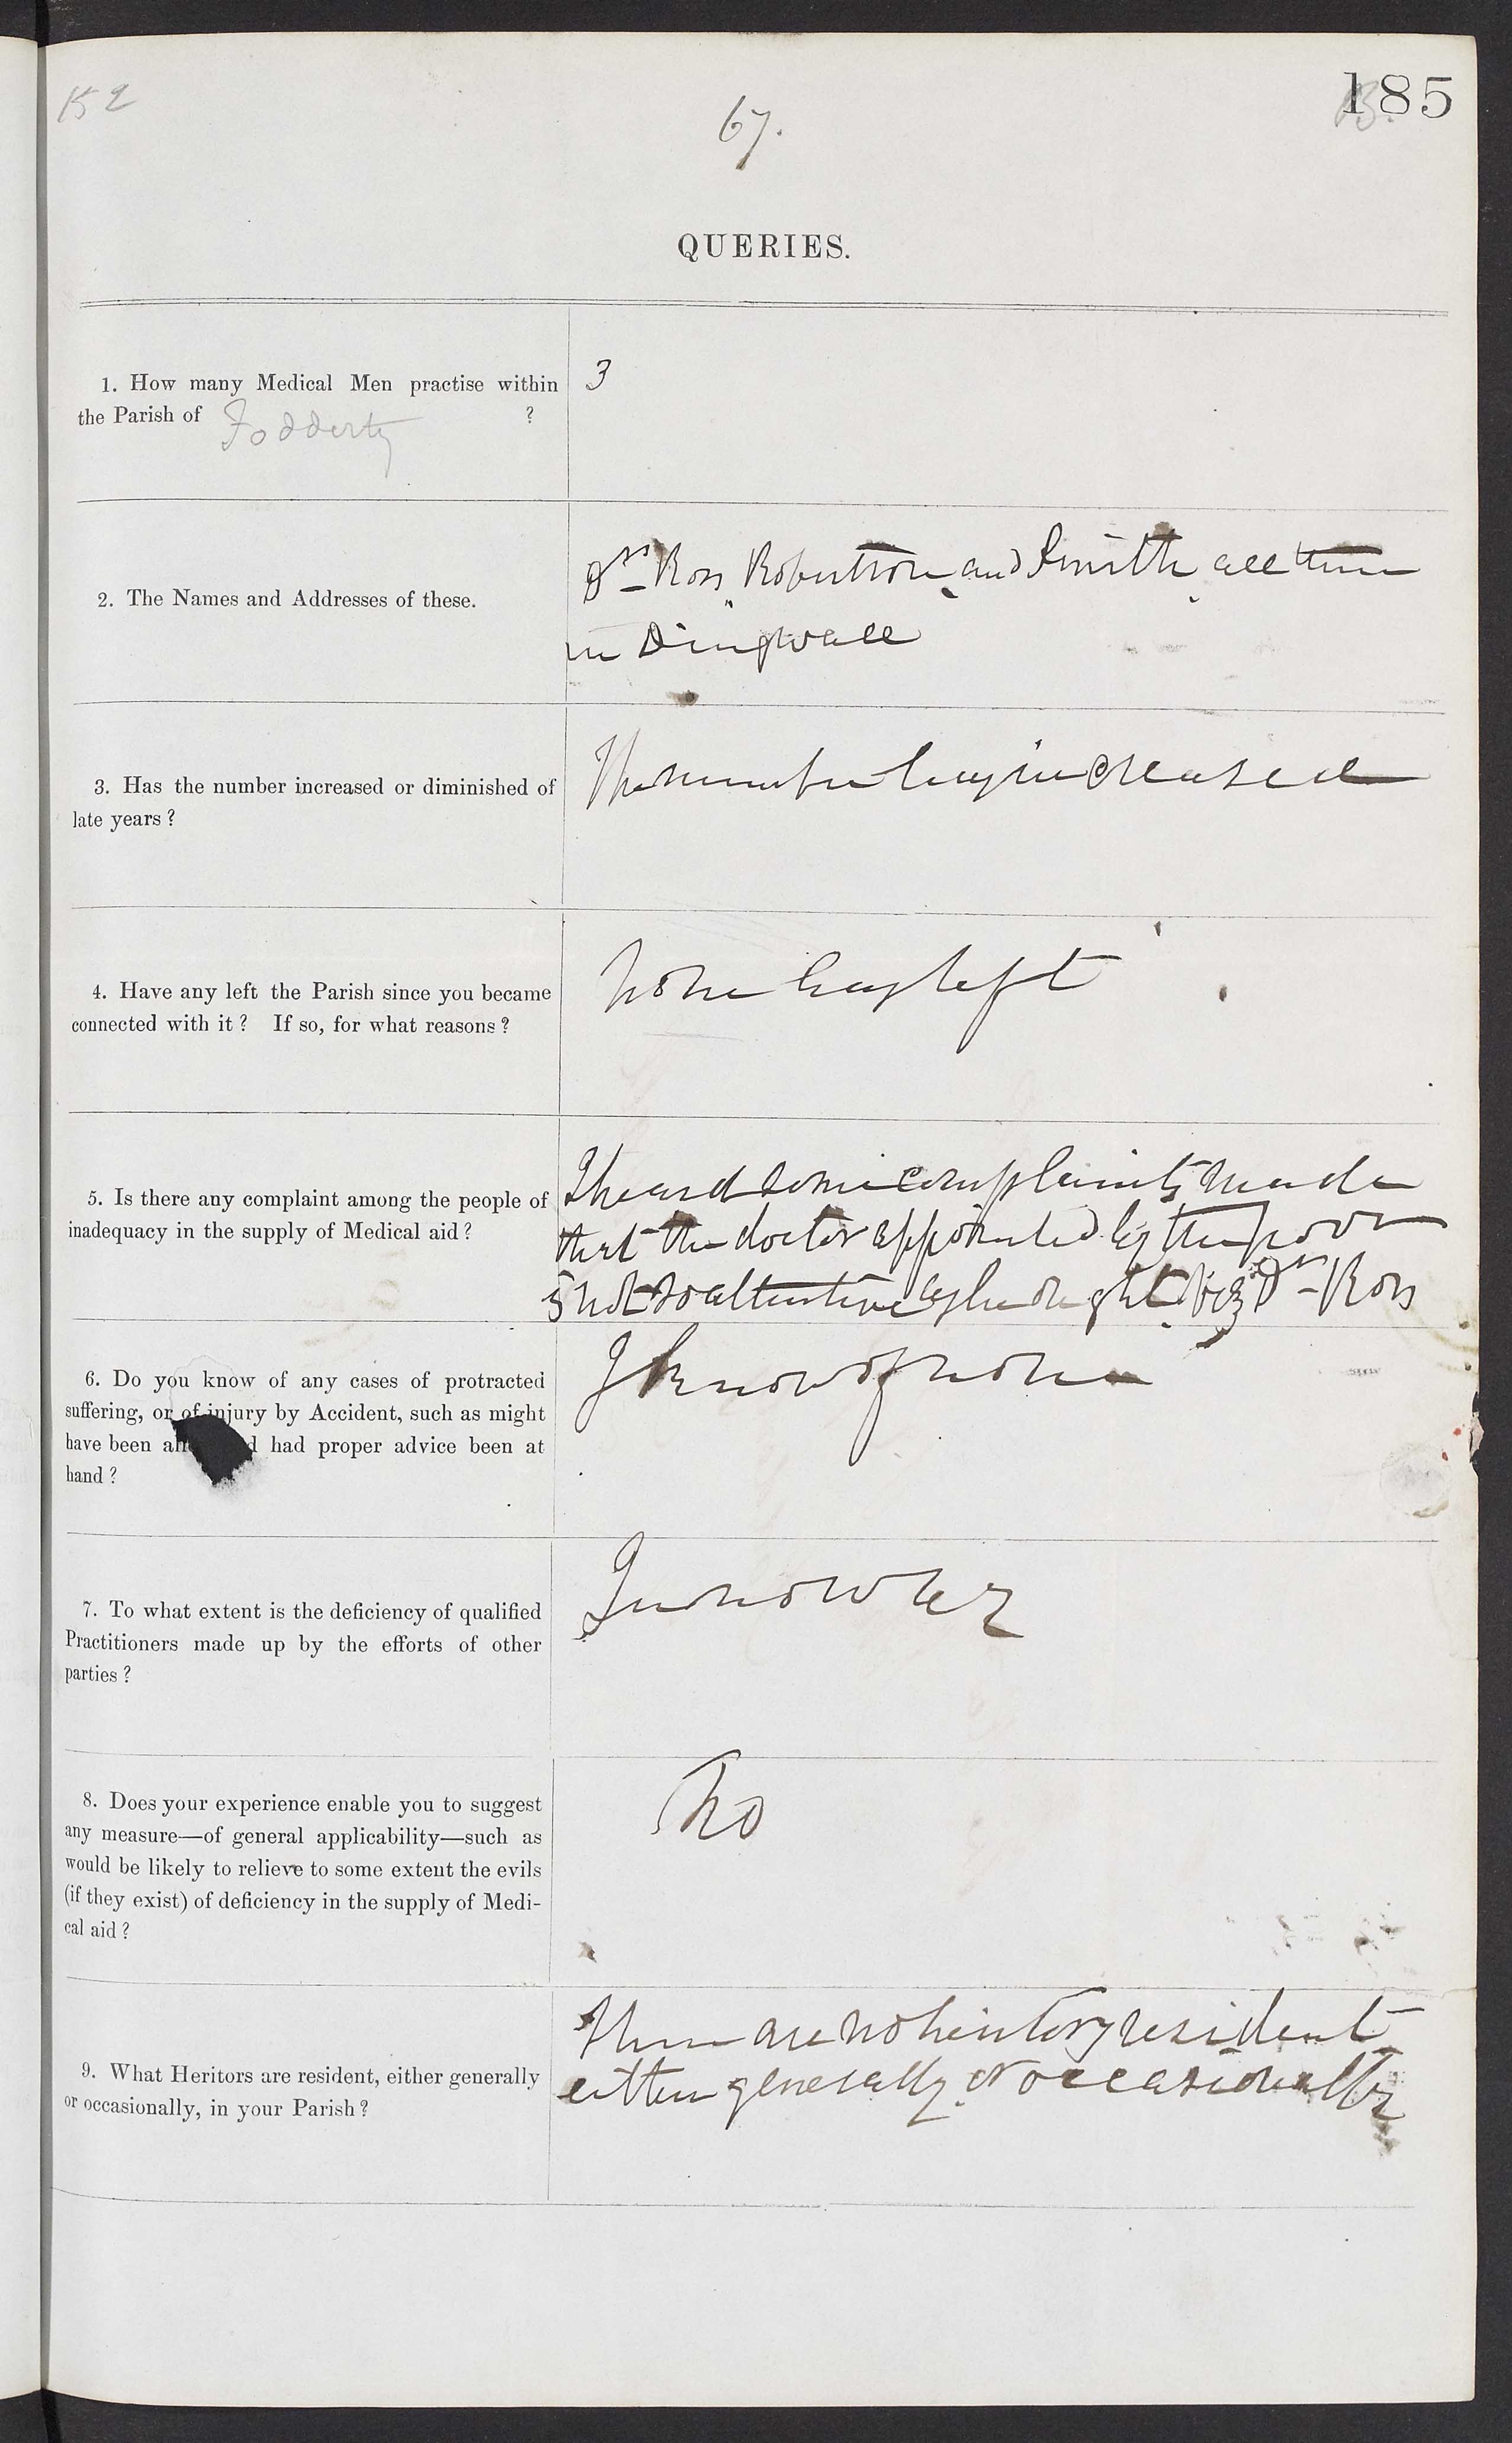 152
67.
185
QUERIES.
1. How many Medical Men practise within
the Parish of Fodderty ?
3
2. The Names and Addresses of these.
Drs Ross Robertson and Smith all three
in Dingwall
3. Has the number increased or diminished of
late years ?
The number has increased
4. Have any left the Parish since you became
connected with it ? If so, for what reasons ?
None has left
5. Is there any complaint among the people of
inadequacy in the supply of Medical aid ?
I heard some complaints made
that the doctor appointed by the poor
is not so attentive as he ought viz Dr Ross
6. Do you know of any cases of protracted
suffering, or of injury by Accident, such as might
have been had proper advice been at
hand ?
I know of none
7. To what extent is the deficiency of qualified
Practitioners made up by the efforts of other
parties ?
In no way
8. Does your experience enable you to suggest
any measure—of general applicability—such as
would be likely to relieve to some extent the evils
(if they exist) of deficiency in the supply of Medi-
cal aid ?
No
9. What Heritors are resident, either generally
or occasionally, in your Parish ?
There are no heritory resident
either generally or occasionally